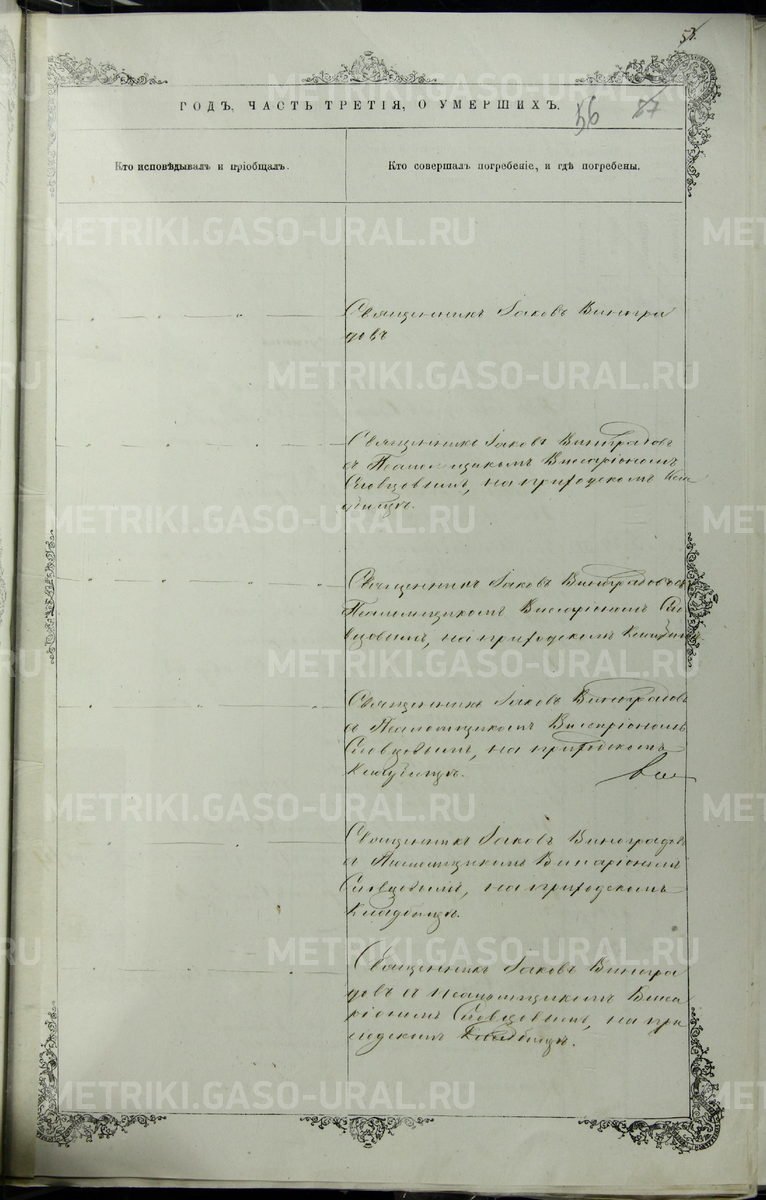 56
ГОДЪ, ЧАСТЬ ТРЕТІЯ, О УМЕРШИХЪ.
Кто исповѣдывалъ и пріобщалъ.
Кто совершалъ погребеніе, и гдѣ погребены.
Священникъ Іаковъ Виногра
довъ
Священникъ Іаковъ Виноградовъ
съ Псаломщикомъ Виссаріономъ
Словцовымъ, на приходскомъ Кла
дбищѣ.
Священникъ Іаковъ Виноградовъ съ
Псаломщикомъ Виссаріономъ Сло
вцовымъ, на приходскомъ Кладбищѣ
Священникъ Іаковъ Виноградовъ
съ Псаломщикомъ Виссаріономъ
Словцовымъ, на приходскомъ
Кладбищѣ.
Священникъ Іаковъ Виноградовъ
съ Псаломщикомъ Висаріономъ
Словцовымъ, на приходскомъ
Кладбищѣ.
Священникъ Іаковъ Виногра
довъ съ Псаломщикомъ Виса
ріономъ Словцовымъ, на при
ходскомъ Кладбищѣ.
METRIKI.GASO-URAL.RU